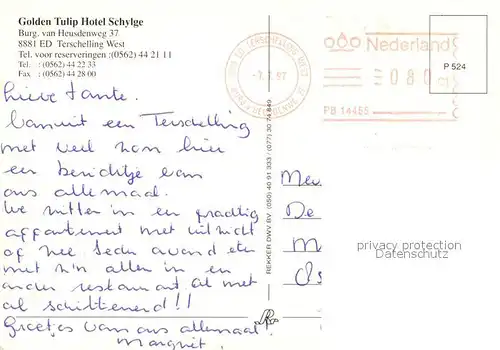 Golden Tulip Hotel Schylge
Burg. van Heusdenweg 37
8881 ED Terschelling West
Tel. voor reserveringen :(0562) 44 21 11
Tel. : (0562) 44 22 33
Fax : (0562) 44 28 00
Lieve tante.
Vanuit een Terschelling
met veel zon hier
een berichtje van
ons allemaal.
We zitten in een prachtig
appartement met uitzicht
op zee. Ieder avond eten
met z'n allen in een
ander restaurant. Al met
al schitterend!!
Groetjes van ons allemaal.
Margriet.
REKKER DWV BV (050) 40 91 333 / (077) 30 74 849
TERSCHELLING WEST
-7. 97
Nederland
080
PB 14455
P 524
De
privacy protection
Datenschutz